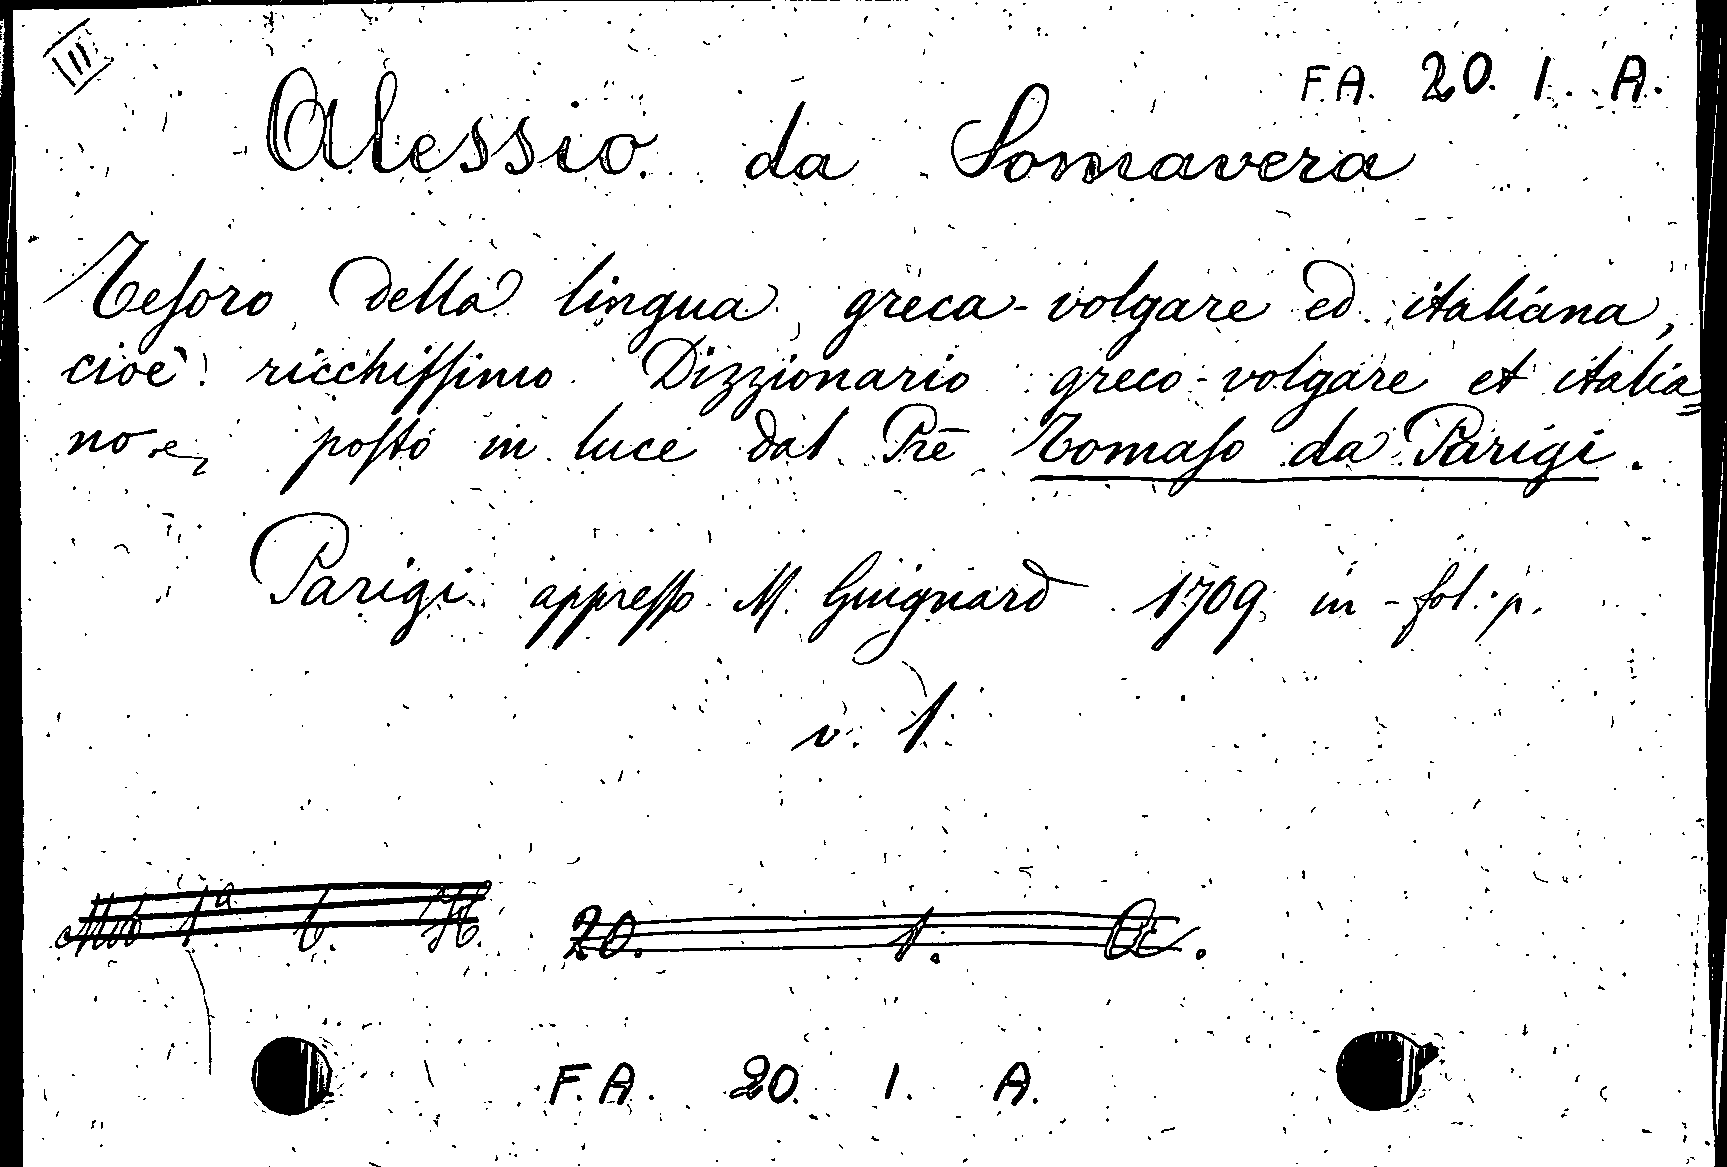 III
F.A. 20. 1. A.
Alessio da Somavera
Tesoro della lingua greca-volgare ed italiana,
cioè ricchissimo Dizzionario greco-volgare et italia=
no e, posto in luce dal Pre Tomaso da Parigi.
Parigi appresso M. Guignard 1709 in-fol. p.
v. 1.
1ª
20. 1. A.
F.A. 20. 1. A.